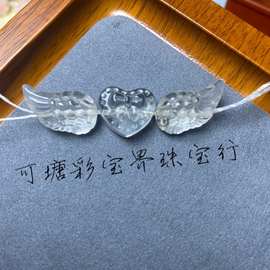 可塘彩宝界珠宝行